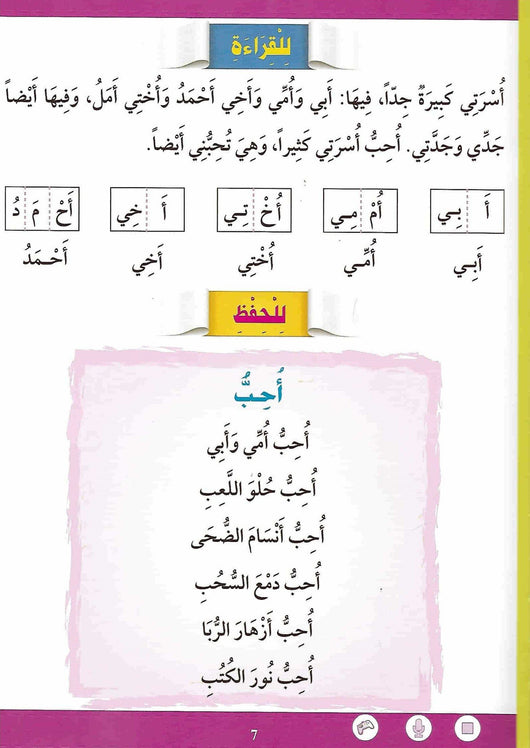 لِلْقِرَاءَةِ
أُسْرَتِي كَبِيرَةٌ جِدّاً، فِيهَا: أَبِي وَأُمِّي وَأَخِي أَحْمَدُ وَأُخْتِي أَمَلُ، وَفِيهَا أَيْضاً
جَدِّي وَجَدَّتِي. أُحِبُّ أُسْرَتِي كَثِيراً، وَهِيَ تُحِبُّنِي أَيْضاً.
أَ بِـي أُمْ مِـي أُخْ تِـي أَ خِي أَحْ مَ دُ
أَبِـي أُمِّـي أُخْتِي أَخِي أَحْـمَدُ
لِلْحِفْظِ
أُحِـبُّ
أُحِبُّ أُمِّي وَأَبِي
أُحِبُّ حُلْوَ اللَّعِبِ
أُحِبُّ أَنْسَامَ الضُّحَى
أُحِبُّ دَمْعَ السُّحُبِ
أُحِبُّ أَزْهَارَ الرُّبَا
أُحِبُّ نُورَ الكُتُبِ
7